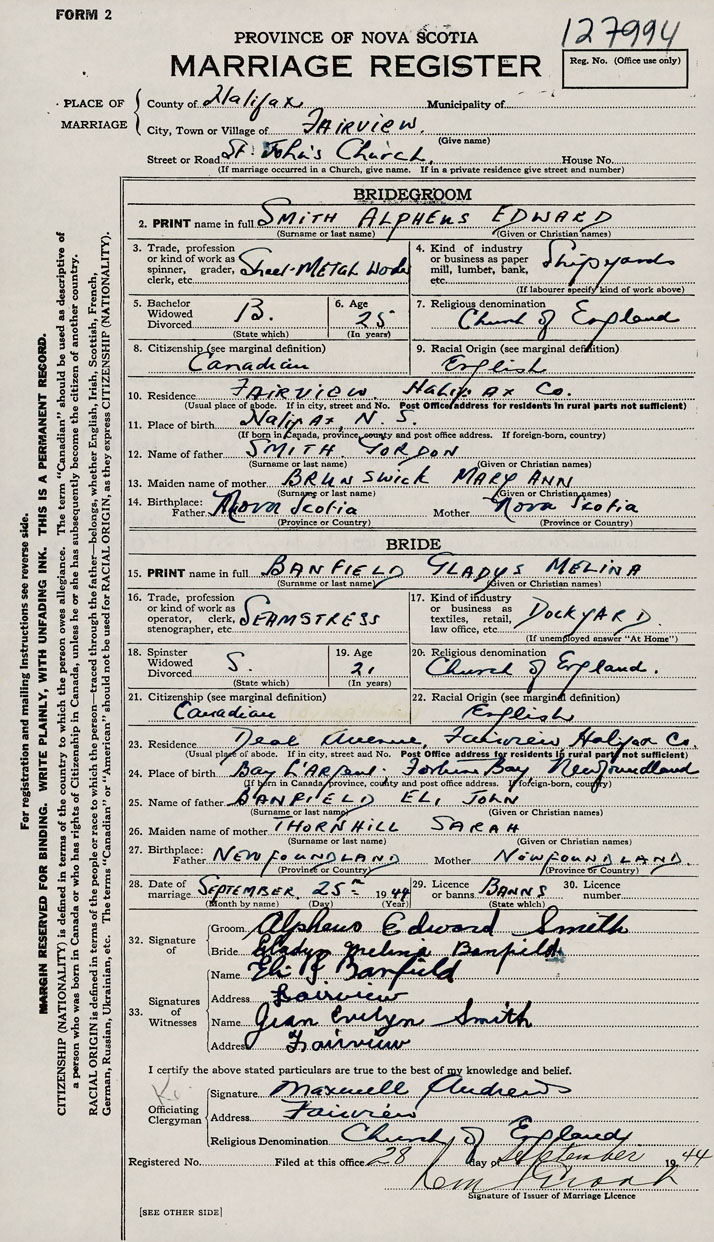 FORM 2
127994
PROVINCE OF NOVA SCOTIA
MARRIAGE REGISTER
Reg. No. (Office use only)
PLACE OF MARRIAGE
County of Halifax Municipality of
City, Town or Village of FAIRVIEW.
(Give name)
Street or Road St. John's Church, House No.
(If marriage occurred in a Church, give name. If in a private residence give street and number)
BRIDEGROOM
2. PRINT name in full SMITH ALPHEUS EDWARD
(Surname or last name) (Given or Christian names)
3. Trade, profession or kind of work as spinner, grader, clerk, etc. Sheet-METAL Worker
4. Kind of industry or business as paper mill, lumber, bank, etc. Shipyards
(If labourer specify kind of work above)
5. Bachelor Widowed Divorced B. (State which)
6. Age 25 (In years)
7. Religious denomination Church of England
8. Citizenship (see marginal definition) Canadian
9. Racial Origin (see marginal definition) English
10. Residence FAIRVIEW. Halifax Co.
(Usual place of abode. If in city, street and No. Post Office address for residents in rural parts not sufficient)
11. Place of birth Halifax, N. S.
(If born in Canada, province, county and post office address. If foreign-born, country)
12. Name of father SMITH GORDON
(Surname or last name) (Given or Christian names)
13. Maiden name of mother BRUNSWICK MARY ANN
(Surname or last name) (Given or Christian names)
14. Birthplace: Father Nova Scotia Mother Nova Scotia
(Province or Country) (Province or Country)
BRIDE
15. PRINT name in full BANFIELD GLADYS MELINA
(Surname or last name) (Given or Christian names)
16. Trade, profession or kind of work as operator, clerk, stenographer, etc. SEAMSTRESS
17. Kind of industry or business as textiles, retail, law office, etc. DOCKYARD.
(If unemployed answer "At Home")
18. Spinster Widowed Divorced S. (State which)
19. Age 21 (In years)
20. Religious denomination Church of England.
21. Citizenship (see marginal definition) Canadian
22. Racial Origin (see marginal definition) English
23. Residence Deal Avenue, Fairview Halifax Co.
(Usual place of abode. If in city, street and No. Post Office address for residents in rural parts not sufficient)
24. Place of birth Bay Fortune Bay, Newfoundland
(If born in Canada province, county and post office address. If foreign-born, country)
25. Name of father BANFIELD ELI JOHN
(Surname or last name) (Given or Christian names)
26. Maiden name of mother THORNHILL SARAH
(Surname or last name) (Given or Christian names)
27. Birthplace: Father NEWFOUNDLAND Mother NEWFOUNDLAND.
(Province or Country) (Province or Country)
28. Date of marriage SEPTEMBER 25th 1944
(Month by name) (Day) (Year)
29. Licence or banns BANNS (State which)
30. Licence number
32. Signature of
Groom Alpheus Edward Smith
Bride Gladys Melina Banfield
33. Signatures of Witnesses
Name Eli J Banfield
Address Fairview
Name Jean Evelyn Smith
Address Fairview
I certify the above stated particulars are true to the best of my knowledge and belief.
Officiating Clergyman
Signature Maxwell Andrews
Address Fairview
Religious Denomination Church of England
Registered No. Filed at this office 28 day of September 1944
Signature of Issuer of Marriage Licence
[SEE OTHER SIDE]
For registration and mailing instructions see reverse side.
MARGIN RESERVED FOR BINDING. WRITE PLAINLY, WITH UNFADING INK. THIS IS A PERMANENT RECORD.
CITIZENSHIP (NATIONALITY) is defined in terms of the country to which the person owes allegiance. The term "Canadian" should be used as descriptive of
a person who was born in Canada or who has rights of Citizenship in Canada, unless he or she has subsequently become the citizen of another country.
RACIAL ORIGIN is defined in terms of the people or race to which the person—traced through the father—belongs, whether English, Irish, Scottish, French,
German, Russian, Ukrainian, etc. The terms "Canadian" or "American" should not be used for RACIAL ORIGIN, as they express CITIZENSHIP (NATIONALITY).